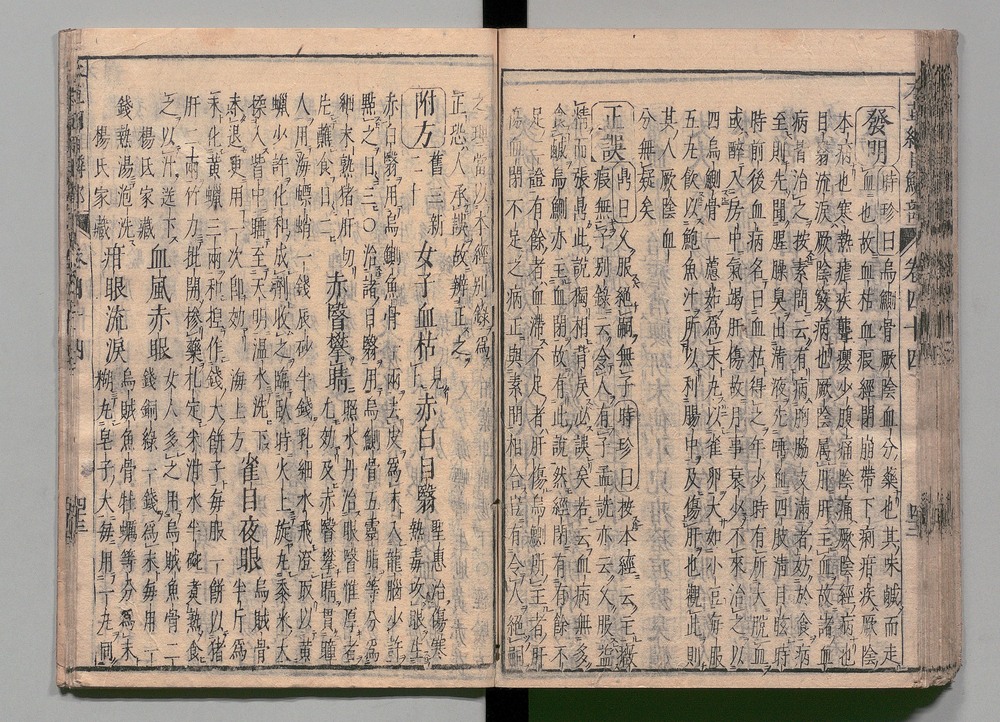 本草綱目鱗部 卷四十四
發明 時珍曰烏鰂骨厥陰血分藥也其味鹹而走
血也故血枯血瘕經閉崩帶下痢疳疾厥陰
本病也寒熱瘧疾聾癭少腹痛陰痛厥陰經病也
目翳流淚厥陰竅病也厥陰屬肝肝主血故諸血
病者治之按素問云有病胸脇支滿者妨於食病
至則先聞腥臊臭出清液先唾血四肢清目眩時
時前後血病名曰血枯得之年少時有所大脫血
或醉入房中氣竭肝傷故月事衰少不來治之以
四烏鰂骨一藘茹爲末丸以雀卵大如小豆每服
五丸飲以鮑魚汁所以利腸中及傷肝也觀此則
其入厥陰血
分無疑矣
正誤 鼎曰久服絕嗣無子時珍曰按本經云主癥
瘕無子別錄云令人有子孟詵亦云久服益
精而張鼎此說獨相背戾必誤矣若云血病無多
食鹹烏鰂亦主血閉故有此說然經閉有有餘不
足二證有餘者血滯不足者肝傷烏鰂所主者肝
傷血閉不足之病正與素問相合豈有令人絕嗣
之理當以本經別錄爲
正恐人承誤故辨正之
附方 舊三新二十 女子血枯 見上 赤白目翳 聖惠治傷寒熱毒攻眼生
赤白翳用烏鰂魚骨一兩去皮爲末入龍腦少許
點之日三○治諸目翳用烏鰂骨五靈脂等分爲
細末熟猪肝切
片蘸食日二
赤瞖攀睛
照水丹治眼瞖惟厚者
尤效及赤瞖攀睛貫瞳
人用海螵蛸一錢辰砂半錢乳細水飛澄取以黃
蠟少許化和成劑收之臨臥時火上旋丸黍米大
揉入眥中睡至天明溫水洗下
未退更用一次即效 海上方
雀目夜眼
烏賊骨
半斤爲
末化黃蠟三兩和捏作錢大餅子每服一餅以猪
肝二兩竹刀批開摻藥扎定米泔水半碗煮熟食
之以汁送下
楊氏家藏
血風赤眼
女人多之用烏賊魚骨二
錢銅綠一錢爲末每用一
錢熱湯泡洗
楊氏家藏
疳眼流淚
烏賊魚骨牡蠣等分爲末
糊丸皂子大每用一丸同